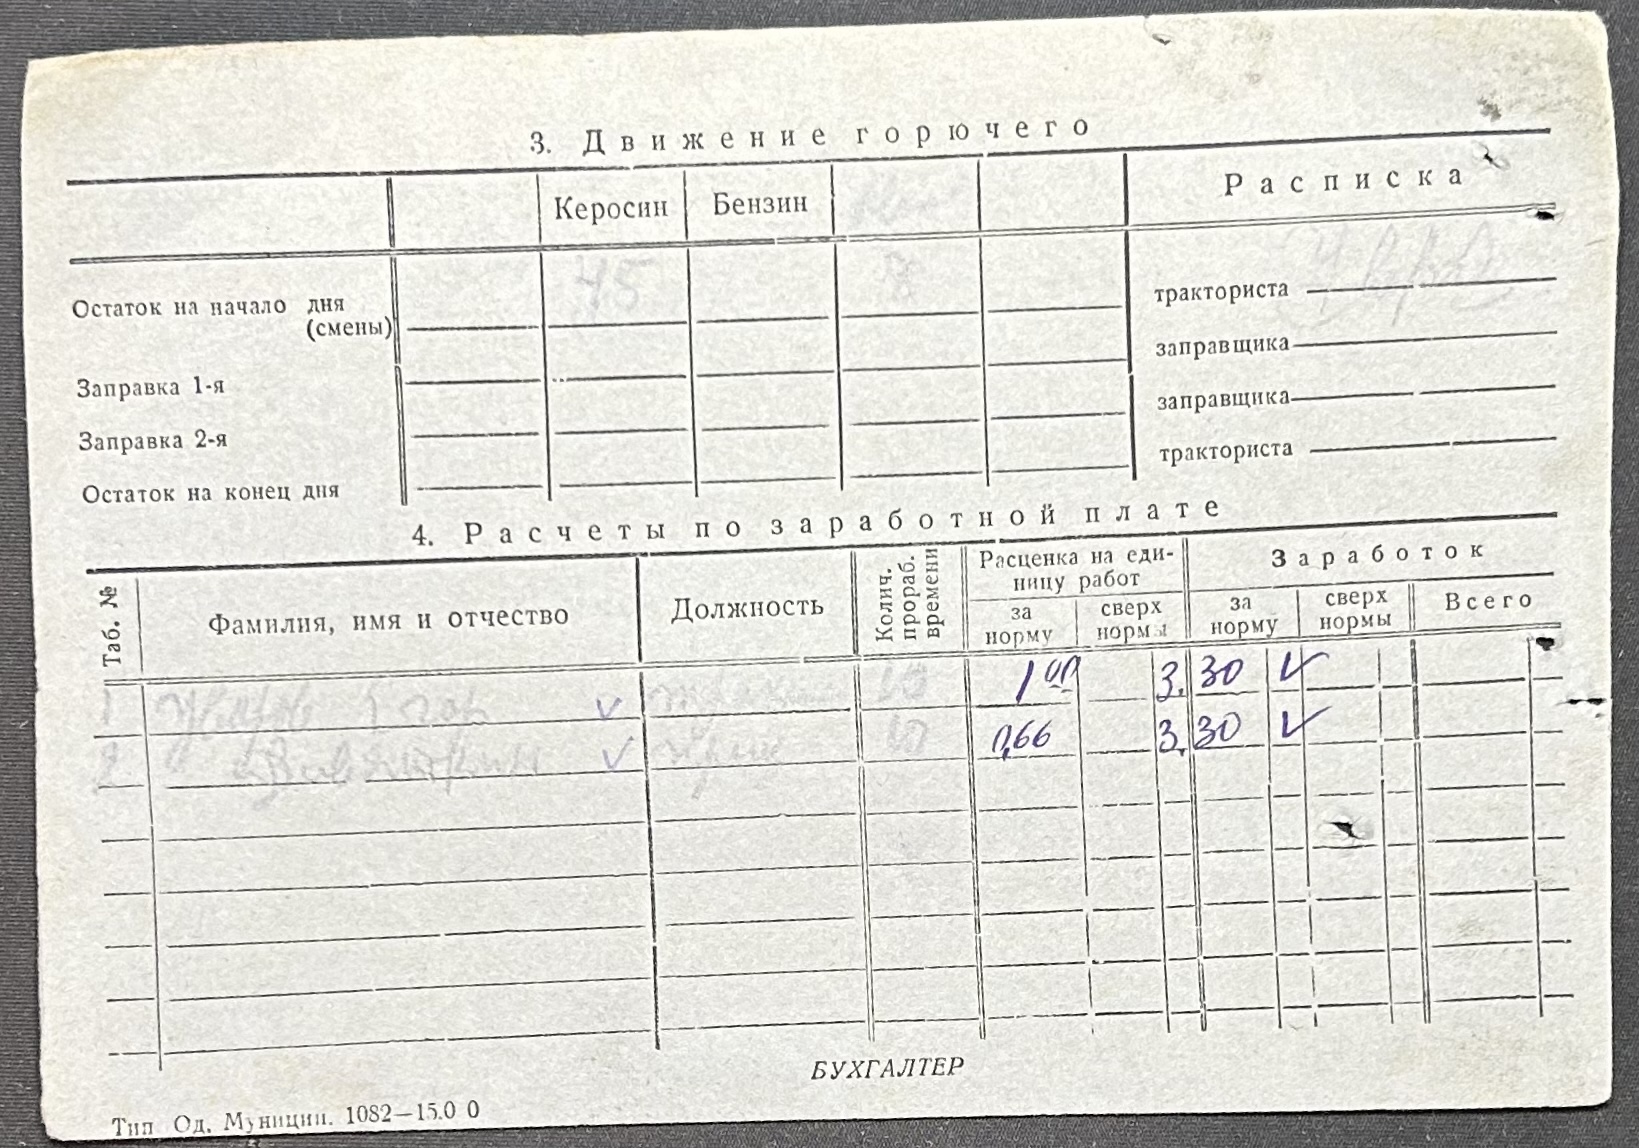 3. Движение горючего
Керосин Бензин Расписка
45
Остаток на начало дня тракториста
(смены)
заправщика
Заправка 1-я
заправщика
Заправка 2-я
тракториста
Остаток на конец дня
4. Расчеты по заработной плате
Таб. № Фамилия, имя и отчество Должность Колич. прораб. времени Расценка на еди-
ницу работ Заработок
за норму сверх нормы за норму сверх нормы Всего
1 1 00 3. 30
2 0,66 3. 30
БУХГАЛТЕР
Тип Од. Муницип. 1082—15.0 0